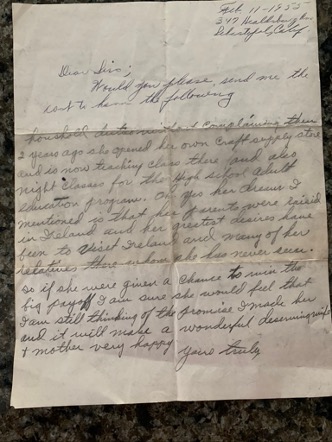 Feb. 11-1955
347 Healdsburg Ave
Sebastopol, Calif
Dear Sirs;
Would you please send me the
cost to have the following
household duties without complaining then
2 years ago she opened her own craft supply store
and is now teaching class there and also
night classes for the High school Adult
education program. Oh yes her dream I
mentioned is that her parents were raised
in Ireland and her greatest desires have
been to visit Ireland and many of her
relatives there whom she has never seen.
So if she were given a chance to win the
big payoff I am sure she would feel that
I am still thinking of the promise I made her
and it will make a wonderful deserving wife
+ mother very happy
Yours truly